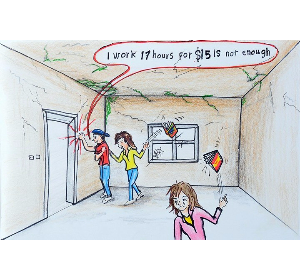 I work 17 hours for $15 is not enough